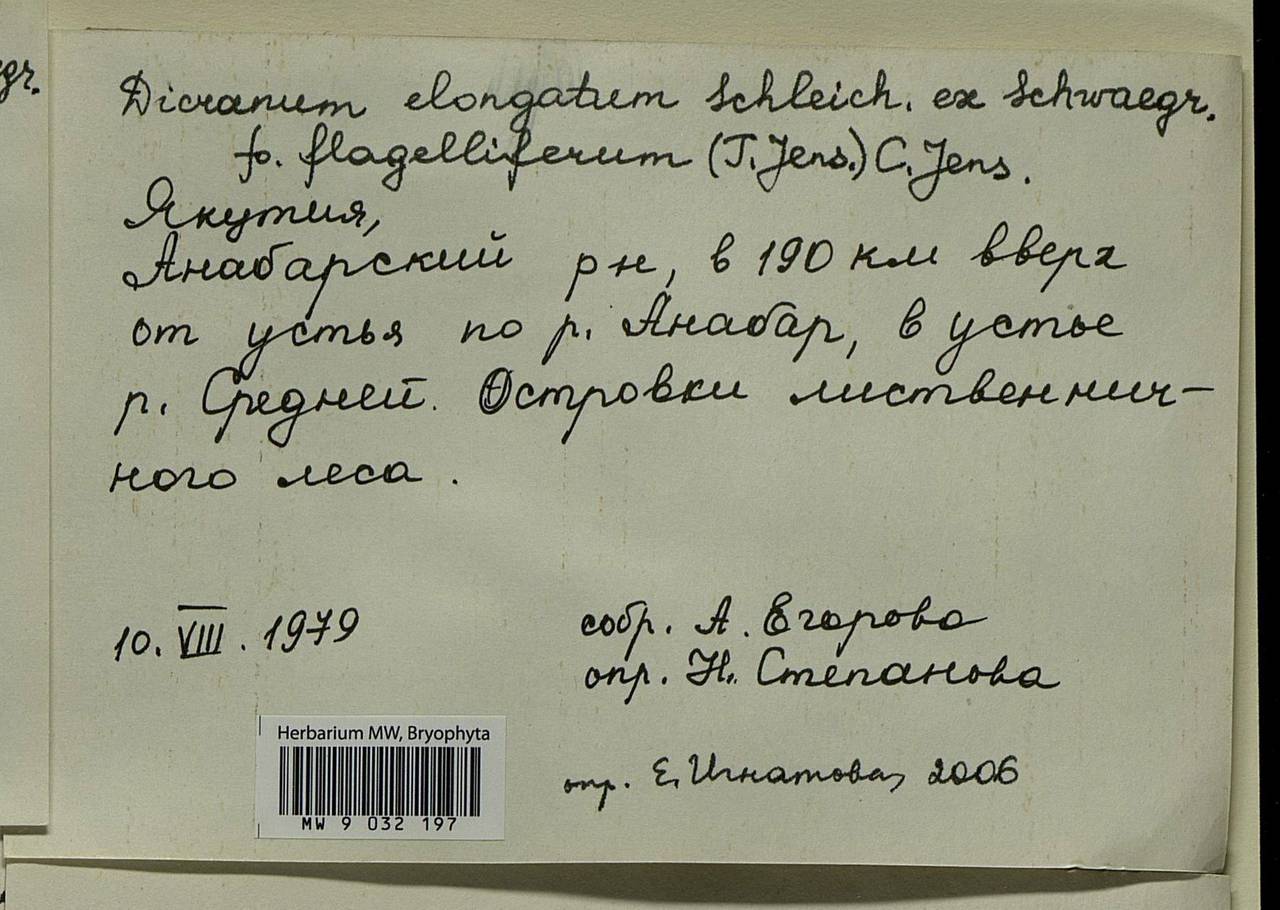 gr.
Dicranum elongatum Schleich. ex Schwaegr.
fo. flagelliferum (T. Jens.) C. Jens.
Якутия,
Анабарский р н, в 190 км вверх
от устья по р. Анабар, в устье
р. Средней. Островки лиственнич-
ного леса.
10. VIII. 1979
собр. А. Егорова
опр. Н. Степанова
Herbarium MW, Bryophyta
MW 9 032 197
опр. Е. Игнатова, 2006